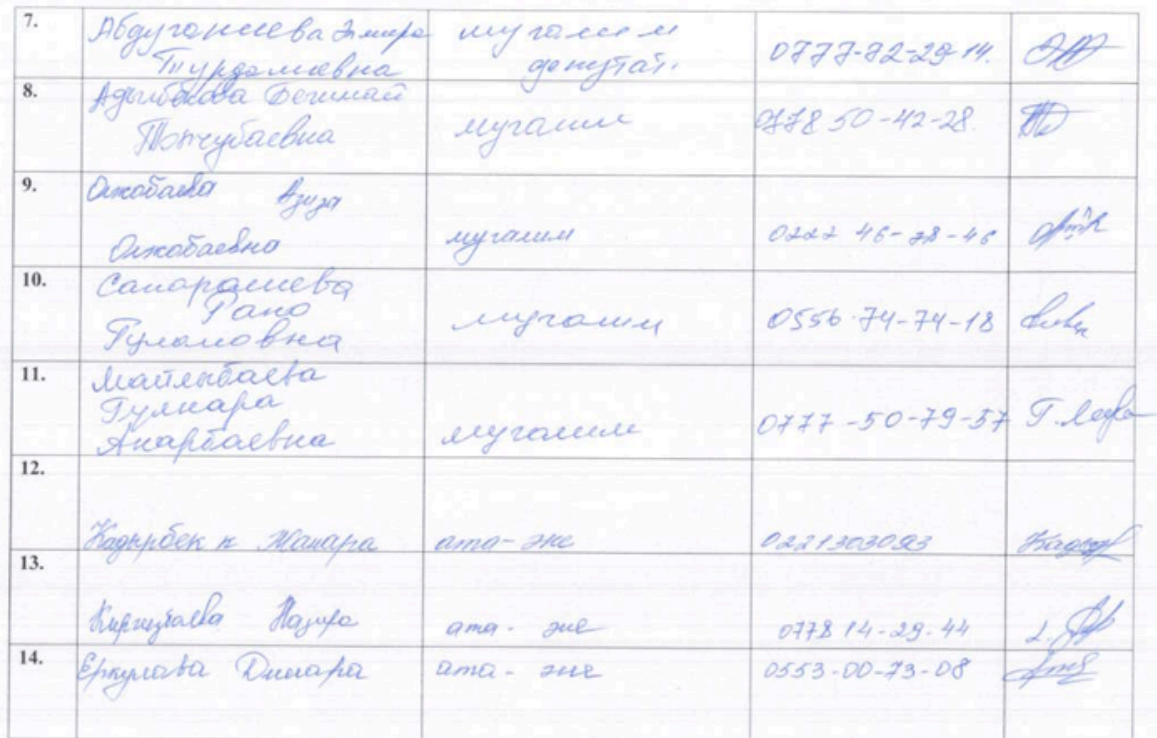 7. Абдуганиева Элмира мугалим
Турдалиевна депутат. 0777-72-29-14.
8. Адылбекова Бегимай
Токчубаевна мугалим 0778 50-42-28.
9. Ожобаева Азиза
Ожобаевна мугалим 0222 46-78-46
10. Сапаралиева
Рано мугалим 0556-74-74-18
Гуламовна
11. Майлыбаева
Гулнара
Анарбаевна мугалим 0777-50-79-57
12.
Кадырбек к Жанара ата-эне 0221303093
13.
Киргизбаева Назира ата-эне 0778 14-29-44
14. Еркулова Динара ата-эне 0553-00-73-08